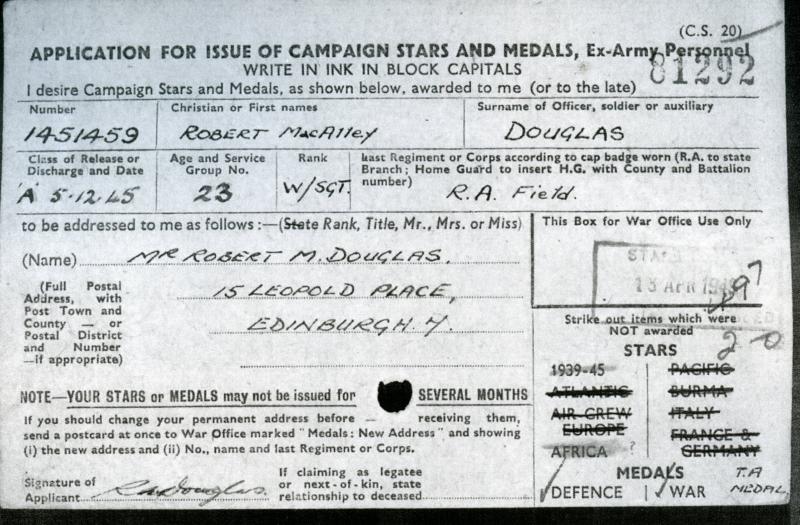 (C.S. 20)
APPLICATION FOR ISSUE OF CAMPAIGN STARS AND MEDALS, Ex-Army Personnel
81292
WRITE IN INK IN BLOCK CAPITALS
I desire Campaign Stars and Medals, as shown below, awarded to me (or to the late)
Number Christian or First names Surname of Officer, soldier or auxiliary
1451459 ROBERT MacAlley DOUGLAS
Class of Release or Discharge and Date
Age and Service Group No.
Rank
Last Regiment or Corps according to cap badge worn (R.A. to state Branch; Home Guard to insert H.G. with County and Battalion number)
A 5.12.45 23 W/SGT. R.A. Field.
to be addressed to me as follows:—(State Rank, Title, Mr., Mrs. or Miss)
(Name) MR ROBERT M. DOUGLAS.
(Full Postal Address, with Post Town and County — or Postal District and Number —if appropriate)
15 LEOPOLD PLACE,
EDINBURGH. 7.
This Box for War Office Use Only
13 APR 194
97
Strike out items which were
NOT awarded
2-0
STARS
1939-45 PACIFIC
ATLANTIC BURMA
AIR CREW ITALY
EUROPE FRANCE &
AFRICA ? GERMANY
MEDALS
DEFENCE WAR
T.A
MEDAL
NOTE—YOUR STARS or MEDALS may not be issued for SEVERAL MONTHS
If you should change your permanent address before — receiving them,
send a postcard at once to War Office marked "Medals: New Address" and showing
(i) the new address and (ii) No., name and last Regiment or Corps.
Signature of
Applicant R M Douglas.
If claiming as legatee
or next-of-kin, state
relationship to deceased